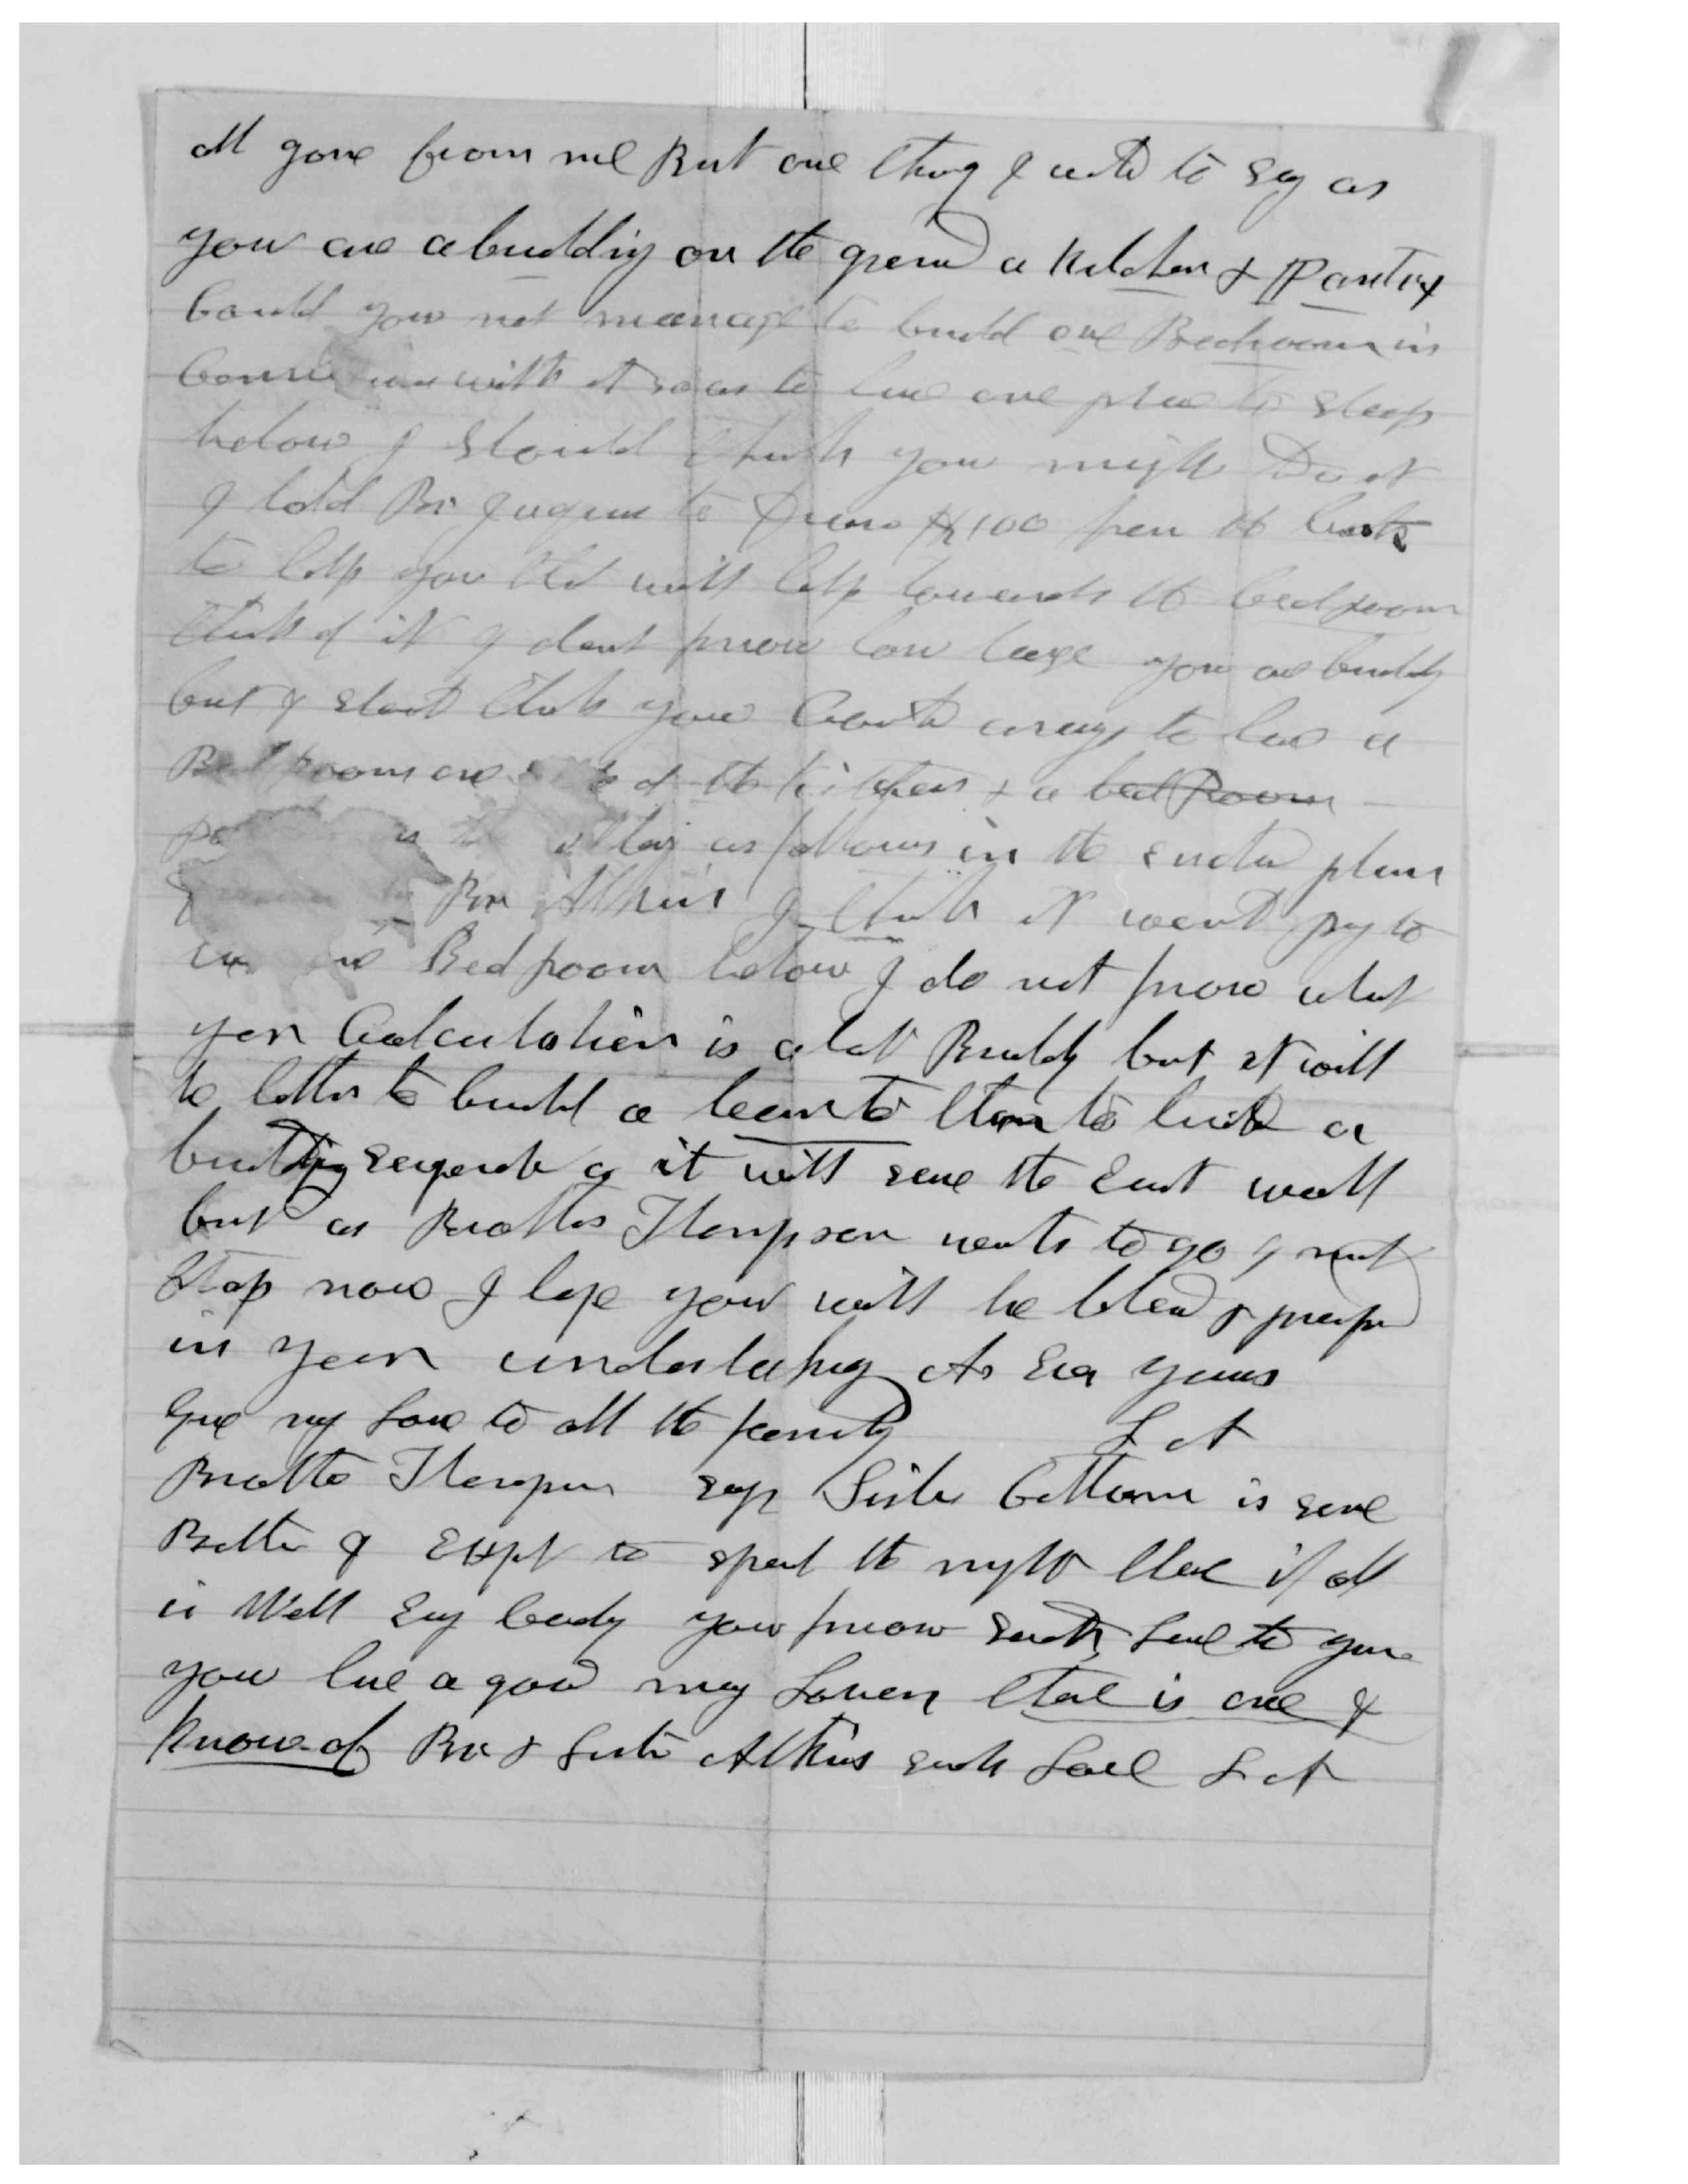 all gone from me But one thing I wish to say as
you are abuilding on the ground a Kitchen & Pantry
Could you not manage to build one Bedroom in
with it so as to have one place to sleep
below I should think you might Do it
I told Br to Draw $100 from the
to help you that will help towards the bedroom
think of it I dont know how large you are building
but I should think you Could arrange to have a
Bed room one of the kitchen & a bed Room
as follows in the plan
Bro Atkins I think it wont pay to
Bedroom below I do not know what
your Calculation is about Building but it will
be better to build a leanto than to build a
building seperate as it will save the East wall
but as Brother Thompson wants to go I must
Stop now I hope you will be blessd & prosper
in your undertaking As Ever yours
Give my Love to all the family L A
Brother Thompson says Sister Cottam is some
Better I Expt to spend the night there if all
is Well Evry body you know sends Love to you
you have a good many Lovers that is one I
know of Br & Sister Atkins sends Love L A